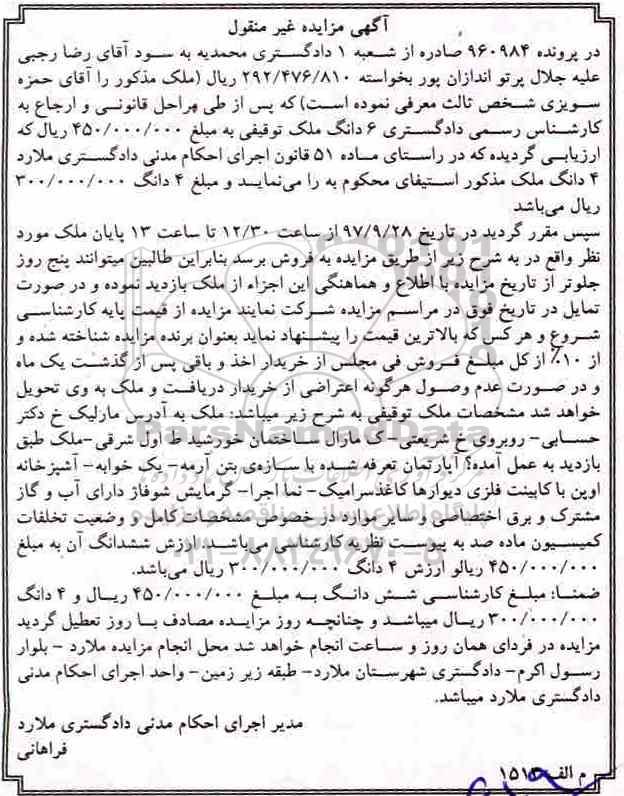 آگهی مزایده غیر منقول
در پرونده ۹۶۰۹۸۴ صادره از شعبه ۱ دادگستری محمدیه به سود آقای رضا رجبی
علیه جلال پرتو اندازان پور بخواسته ۲۹۲/۴۷۶/۸۱۰ ریال (ملک مذکور را آقای حمزه
سویزی شخص ثالث معرفی نموده است) که پس از طی مراحل قانونی و ارجاع به
کارشناس رسمی دادگستری ۶ دانگ ملک توقیفی به مبلغ ۴۵۰/۰۰۰/۰۰۰ ریال که
ارزیابی گردیده که در راستای ماده ۵۱ قانون اجرای احکام مدنی دادگستری ملارد
۴ دانگ ملک مذکور استیفای محکوم به را می‌نماید و مبلغ ۴ دانگ ۳۰۰/۰۰۰/۰۰۰
ریال می‌باشد
سپس مقرر گردید در تاریخ ۹۷/۹/۲۸ از ساعت ۱۲/۳۰ تا ساعت ۱۳ پایان ملک مورد
نظر واقع در به شرح زیر از طریق مزایده به فروش برسد بنابراین طالبین میتوانند پنج روز
جلوتر از تاریخ مزایده با اطلاع و هماهنگی این اجزاء از ملک بازدید نموده و در صورت
تمایل در تاریخ فوق در مراسم مزایده شرکت نمایند مزایده از قیمت پایه کارشناسی
شروع و هر کس که بالاترین قیمت را پیشنهاد نماید بعنوان برنده مزایده شناخته شده و
از ۱۰٪ از کل مبلغ فروش فی مجلس از خریدار اخذ و باقی پس از گذشت یک ماه
و در صورت عدم وصول هرگونه اعتراضی از خریدار دریافت و ملک به وی تحویل
خواهد شد مشخصات ملک توقیفی به شرح زیر میباشد: ملک به آدرس مارلیک خ دکتر
حسابی- روبروی خ شریعتی-ک مارال ساختمان خورشید ط اول شرقی-ملک طبق
بازدید به عمل آمده؟ آپارتمان تعرفه شده با سازه‌ی بتن آرمه- یک خوابه- آشپزخانه
اوپن با کابینت فلزی دیوارها کاغذسرامیک- نما اجرا- گرمایش شوفاژ دارای آب و گاز
مشترک و برق اختصاصی و سایر موارد در خصوص مشخصات کامل و وضعیت تخلفات
کمیسیون ماده صد به پیوست نظریه کارشناسی می‌باشد: ارزش ششدانگ آن به مبلغ
۴۵۰/۰۰۰/۰۰۰ ریالو ارزش ۴ دانگ ۳۰۰/۰۰۰/۰۰۰ ریال می‌باشد.
ضمنا: مبلغ کارشناسی شش دانگ به مبلغ ۴۵۰/۰۰۰/۰۰۰ ریال و ۴ دانگ
۳۰۰/۰۰۰/۰۰۰ ریال میباشد و چنانچه روز مزایده مصادف با روز تعطیل گردید
مزایده در فردای همان روز و ساعت انجام خواهد شد محل انجام مزایده ملارد - بلوار
رسول اکرم- دادگستری شهرستان ملارد- طبقه زیر زمین- واحد اجرای احکام مدنی
دادگستری ملارد میباشد.
مدیر اجرای احکام مدنی دادگستری ملارد
فراهانی
م الف
ParsNamadData
پایگاه اطلاع رسانی مناقصه و مزایده
۰۲۱-۸۸۳۴۹۶۷۰-۵